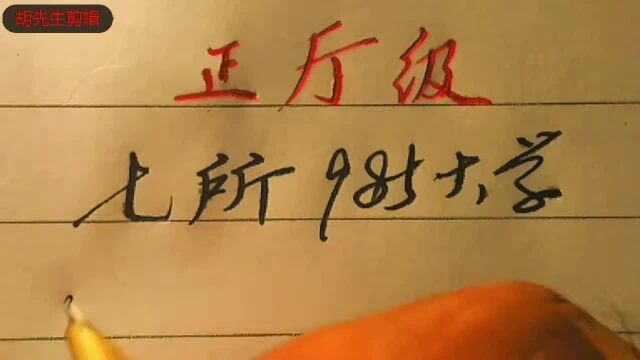 胡先生剪辑
正厅级
七所985大学